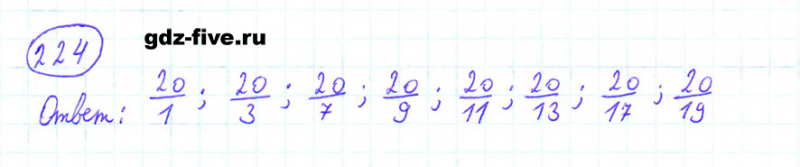 224
gdz-five.ru
Ответ: 20/1; 20/3; 20/7; 20/9; 20/11; 20/13; 20/17; 20/19